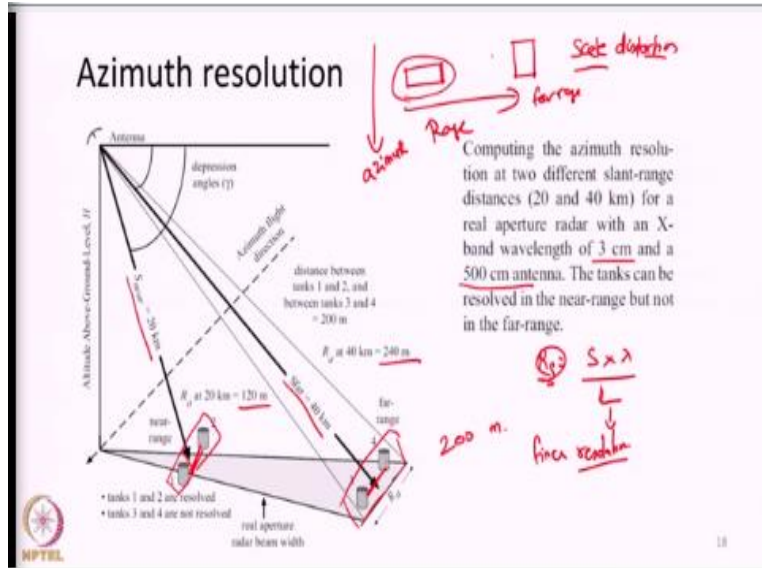 Azimuth resolution
azimuth
Range
far range
Scale distortion
Antenna
depression
angles (γ)
Azimuth flight
direction
Altitude Above-Ground-Level, H
= 20 km
distance between
tanks 1 and 2, and
between tanks 3 and 4
= 200 m
at 40 km = 240 m
at 20 km = 120 m
= 40 km
near-
range
far-
range
2
4
• tanks 1 and 2 are resolved
• tanks 3 and 4 are not resolved
real aperture
radar beam width
Computing the azimuth resolu-
tion at two different slant-range
distances (20 and 40 km) for a
real aperture radar with an X-
band wavelength of 3 cm and a
500 cm antenna. The tanks can be
resolved in the near-range but not
in the far-range.
S x λ
L
200 m.
finer resolution
NPTEL
18